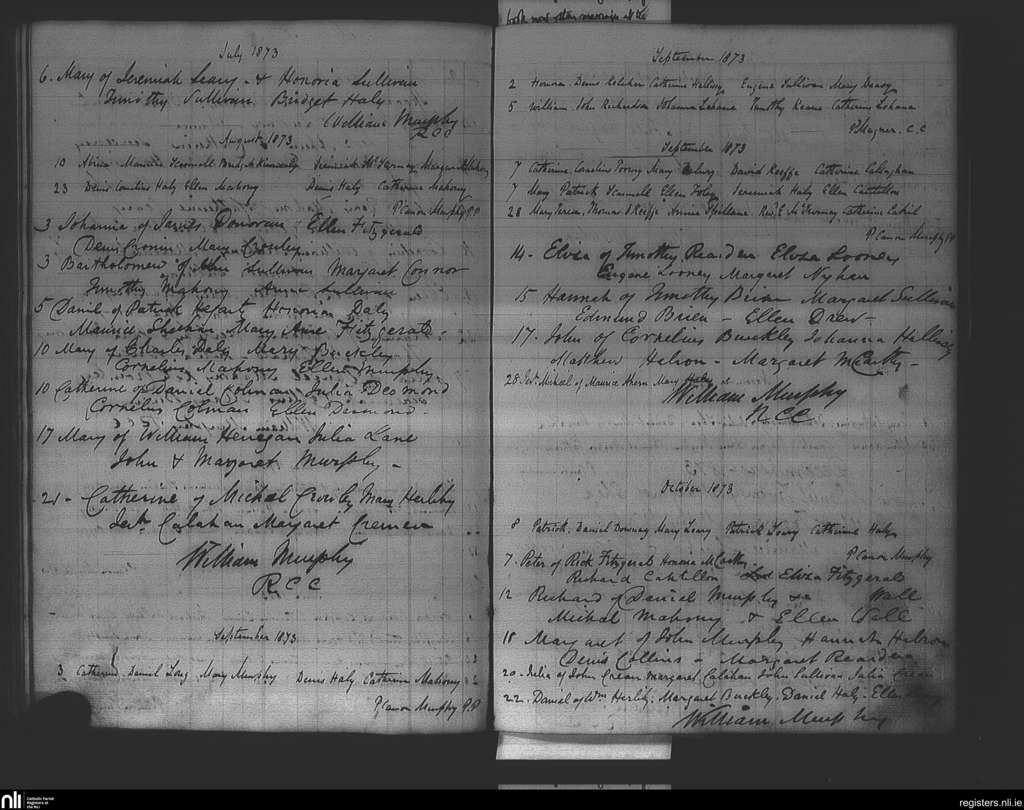 July 1873
6. Mary of Jeremiah Leary & Honoria Sullivan
Timothy Sullivan Bridget Haly
William Murphy
R C C
August 1873
10 Abina Maurice Bridget Jeremiah Margaret
23 Denis Cornelius Haly Ellen Mahony Denis Haly Catherine Mahony
P Canon Murphy P.P
3 Johanna of James Donovan Ellen Fitzgerald
Denis Cronin Mary Crowley
3 Bartholomew of Sullivan Margaret Connor
Timothy Mahony Anne Sullivan
5 Daniel of Patrick Honoria Daly
Maurice Sheehan Mary Anne Fitzgerald
10 Mary of Charles Daly Mary Buckley
Cornelius Mahony Ellen Murphy
10 Catherine of Daniel Colman Julia Desmond
Cornelius Colman Ellen Desmond
17 Mary of William Henegan Julia Lane
John & Margaret Murphy
21 - Catherine of Michal Crowly Mary Herlihy
Calahan Margaret Cremen
William Murphy
R C C
September 1873
3 Catherine Daniel Long Mary Murphy Denis Haly Catherine Mahony
P Canon Murphy P.P
September 1873
2 Honora Denis Kelleher Catherine Eugene Sullivan Mary
5 William John Richardson Johanna Lehane Timothy Keane Catherine Lehane
P Magner. C.C
September 1873
7 Catherine Cornelius Mary David Keeffe Catherine Callaghan
7 Mary Patrick Scannell Ellen Foley Jeremiah Haly Ellen Cantillon
28 Mary Teresa Thomas O Keeffe Annie Spillane Rev. E. Catherine Cahil
P Canon Murphy PP
14 - Eliza of Timothy Rearden Eliza Looney
Eugene Looney Margaret Nyhan
15 Hannah of Timothy Brien Margaret Sullivan
Edmund Brien - Ellen Drew -
17. John of Cornelius Buckley Johanna
Matthew Margaret McCarthy -
28 Michael of Maurice Ahern Mary Haly
William Murphy
R C C
October 1873
8 Patrick Daniel Downey Mary Leary Patrick Leary Catherine Haly
P Canon Murphy
7. Peter of Rick Fitzgerald Honoria McCarthy
Richard Cantillon Eliza Fitzgerald
12 Richard of Daniel Murphy Wall
Michal Mahony & Ellen Wall
18 Margaret of John Murphy Hannah
Denis Collins - Margaret Rearden
20. Julia of John Crean Margaret Calahan John Sullivan Julia Crean
22. Daniel of Wm Herlihy. Margaret Buckly. Daniel Haly. Ellen
William Murphy
nli
Catholic Parish
Registers at
the NLI
registers.nli.ie